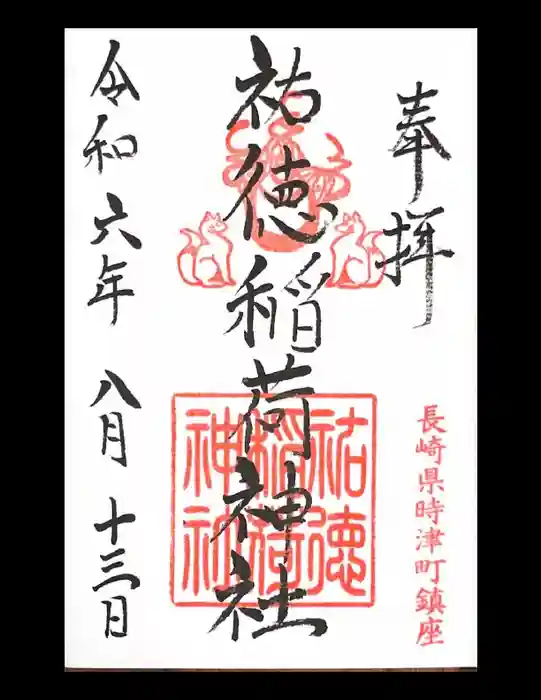 奉拝
長崎県時津町鎮座
祐徳稲荷神社
祐徳
稲荷
神社
令和六年 八月 十三日